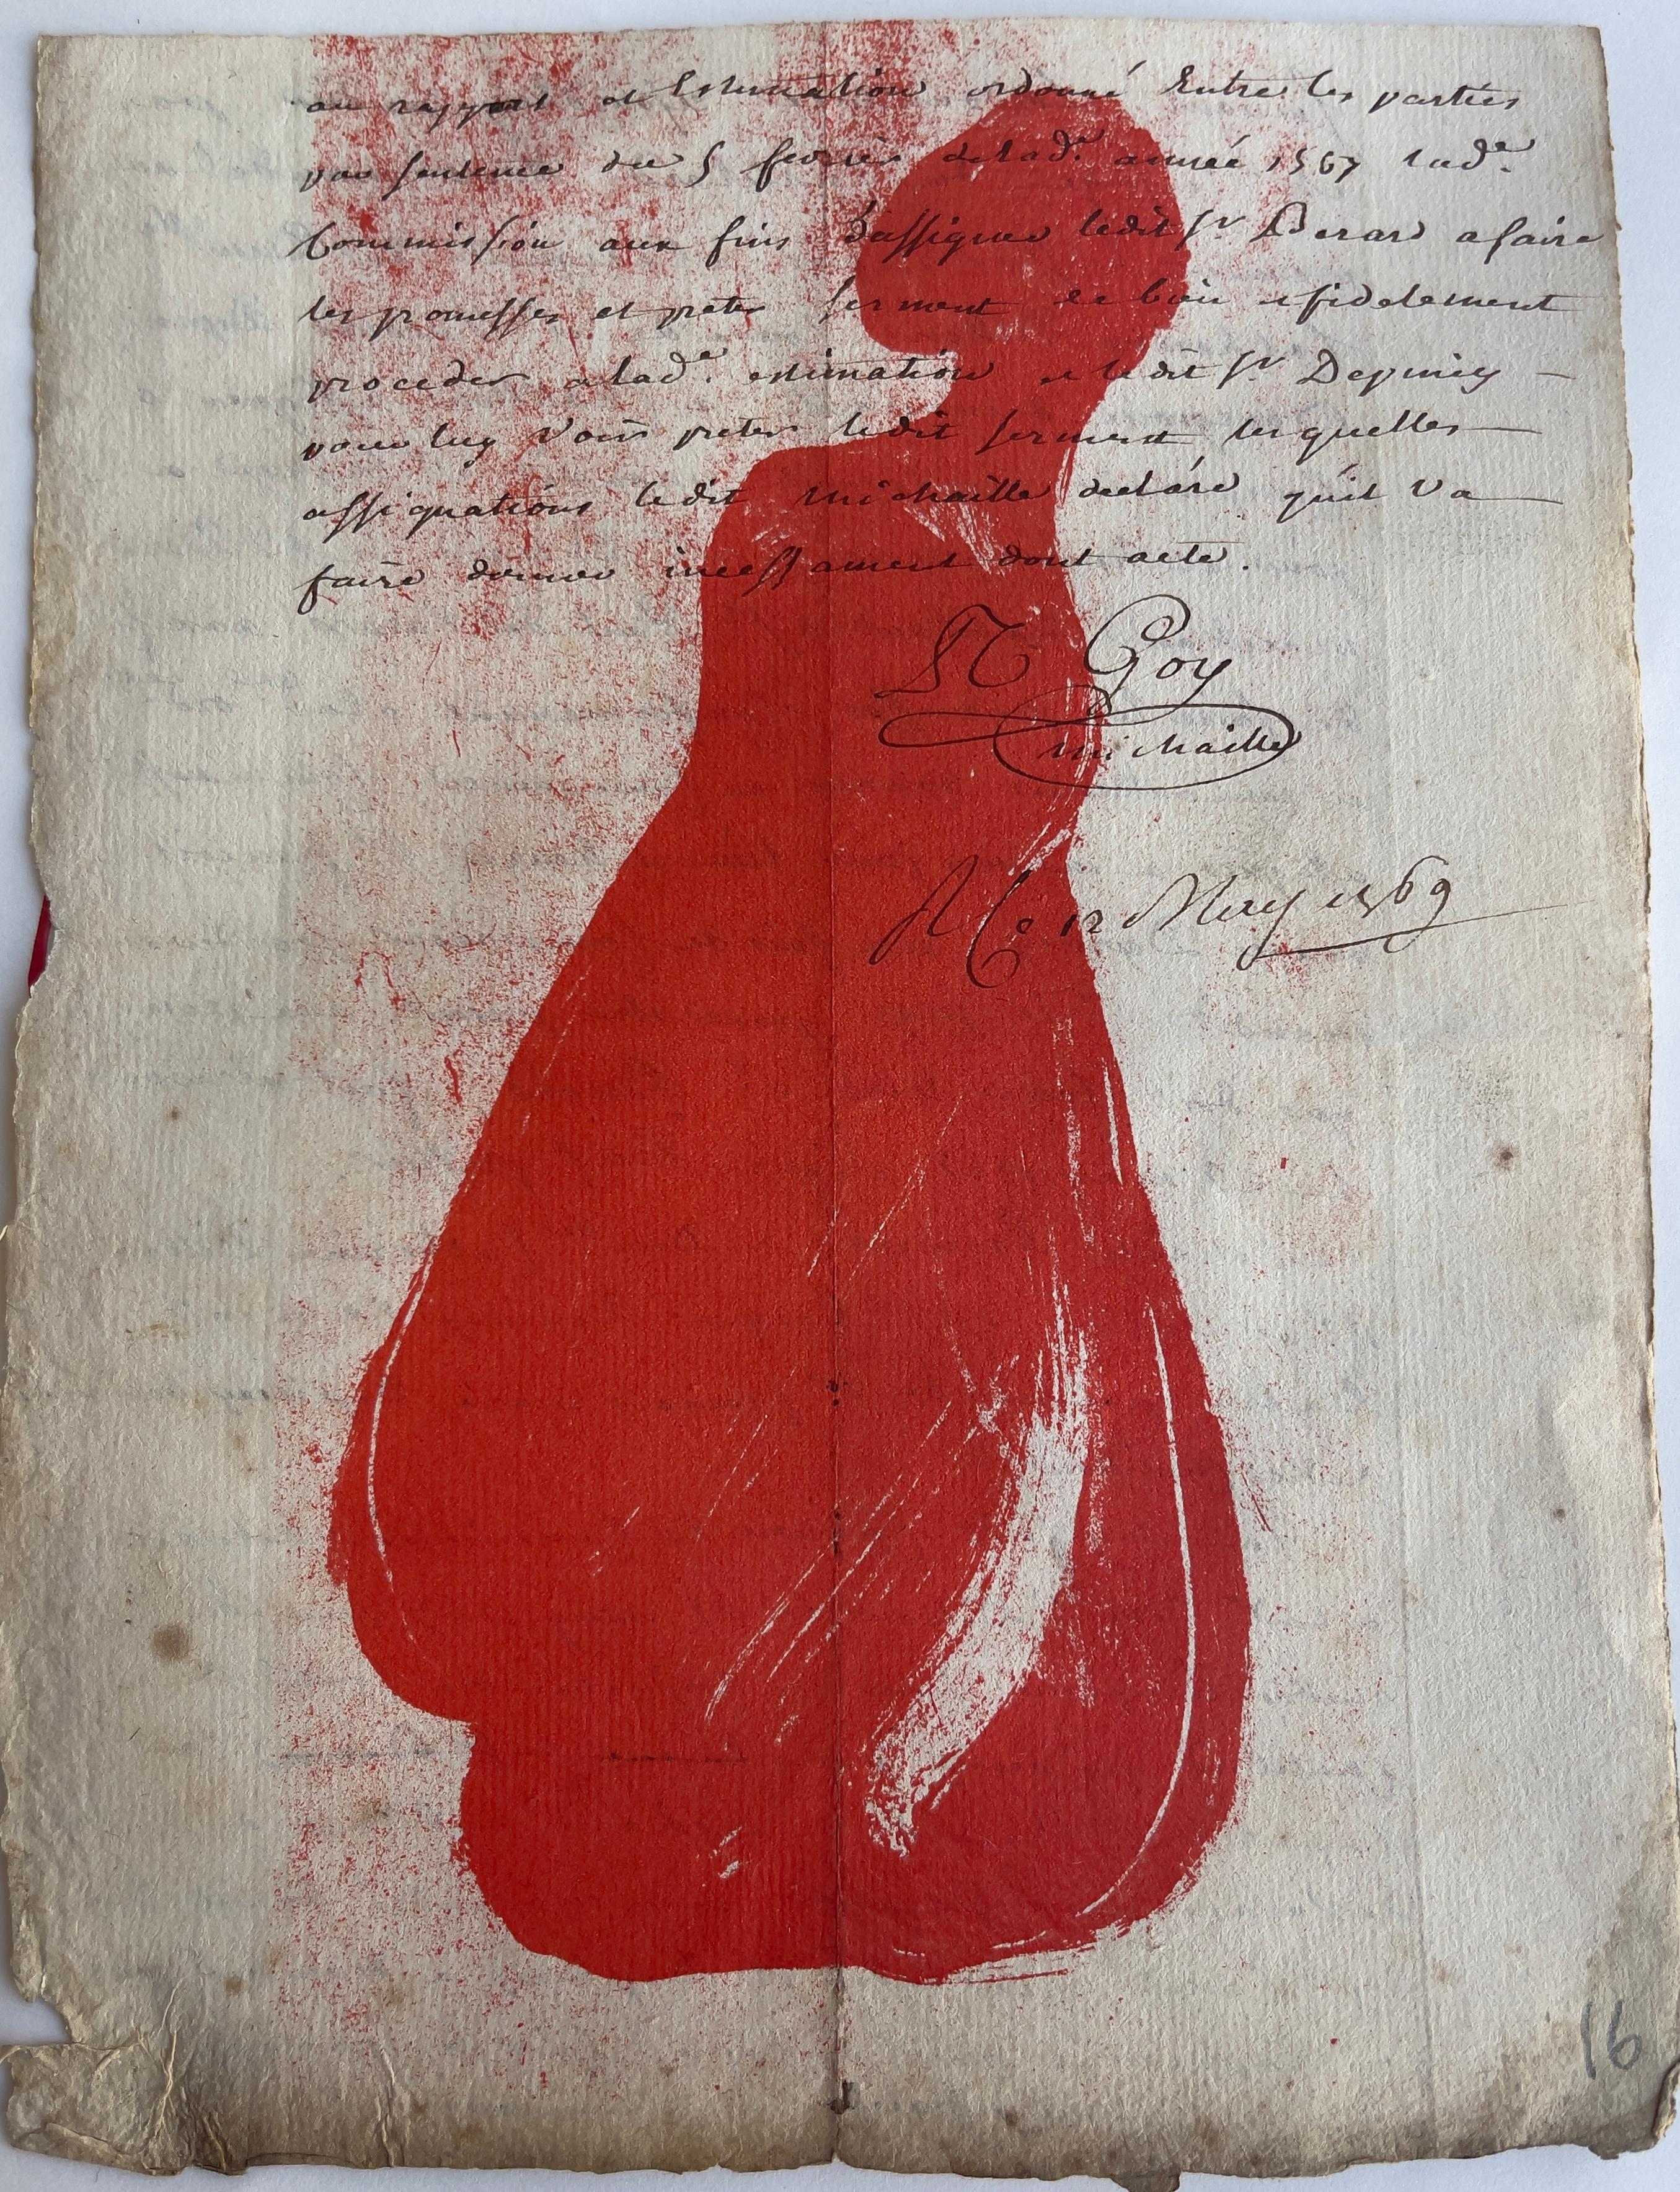 au rapport et Estimation ordonné Entre les parties
par sentence du 5 fevrier de lad.e année 1567 lad.e
Commission aux fins d'assigner ledit Sr Berard a faire
les promesses et preter serment de bien e fidelement
proceder a lad.e estimation e ledit Sr Depuiy -
pour luy voir preter ledit serment lesquelles
assignations ledit michaille declare qu'il va
faire donner incessament dont acte.
Goy
michaille
le 12 May 1569
16